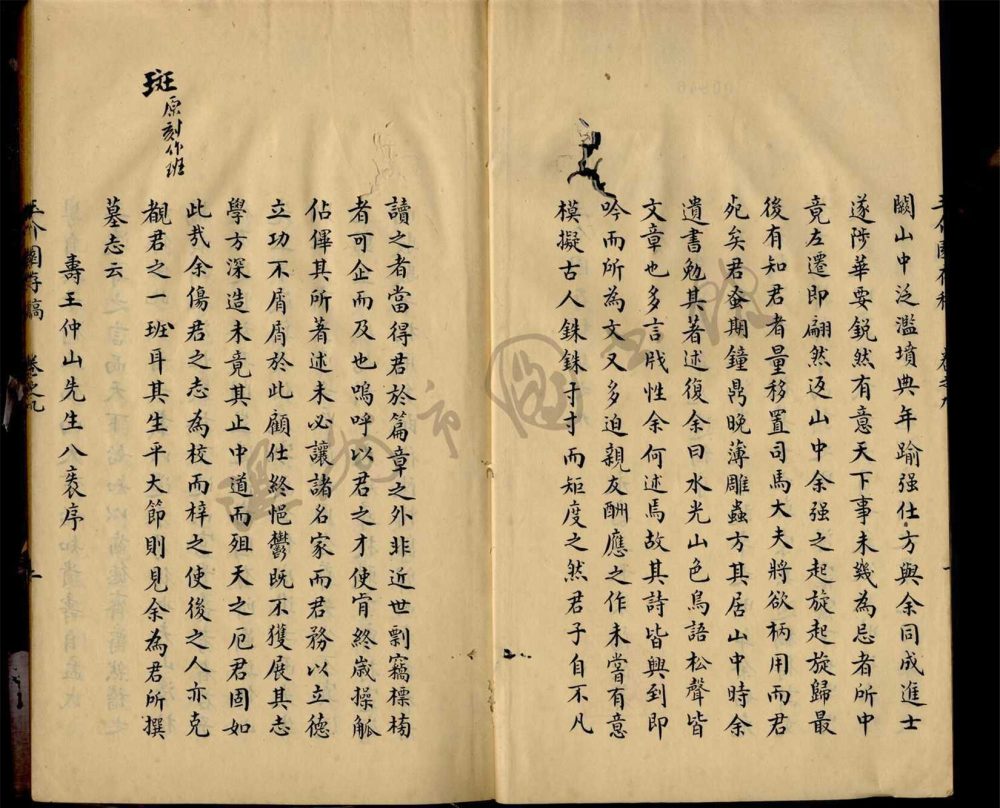 王介園存稿 卷之九 一
闕山中泛濫墳典年踰强仕方與余同成進士
遂陟華要鋭然有意天下事未幾為忌者所中
竟左遷即翩然返山中余强之起旋起旋歸最
後有知君者量移置司馬大夫將欲柄用而君
死矣君蚤期鐘鼎晚薄雕蟲方其居山中時余
遺書勉其著述復余曰水光山色鳥語松聲皆
文章也多言戕性余何述焉故其詩皆興到即
吟而所為文又多迫親友酬應之作未嘗有意
模擬古人銖銖寸寸而矩度之然君子自不凡
讀之者當得君於篇章之外非近世剽竊標樠
者可企而及也嗚呼以君之才使肯終歲操觚
佔俾其所著述未必讓諸名家而君務以立德
立功不屑屑於此顧仕終悒鬱既不獲展其志
學方深造未竟其止中道而殂天之厄君固如
此㢤余傷君之志為校而梓之使後之人亦克
覩君之一班耳其生平大節則見余為君所撰
墓志云
壽王仲山先生八袠序
斑 原刻作班
王介園存稿 卷之九